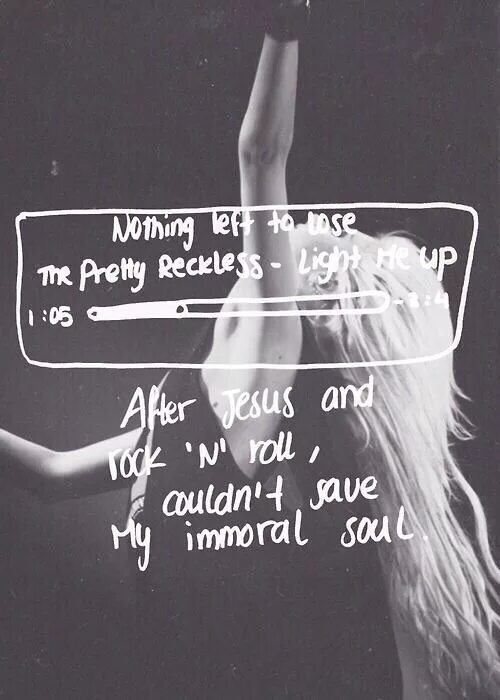 Nothing left to lose
The Pretty Reckless - Light Me up
1:05 -3:4
After Jesus and
rock 'N' roll,
couldn't save
My immoral soul.